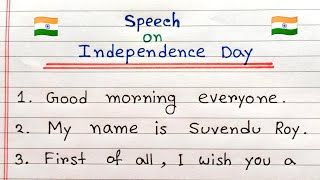 Speech
on
Independence Day
1. Good morning everyone.
2. My name is Suvendu Roy.
3. First of all, I wish you a